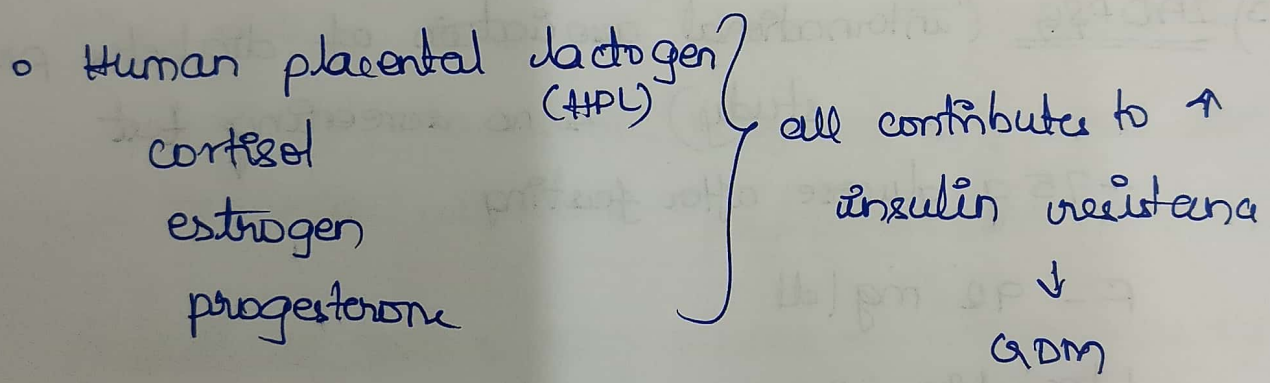 o Human placental lactogen
(HPL)
cortisol
estrogen
progesterone
all contributes to ↑
insulin resistance
↓
GDM